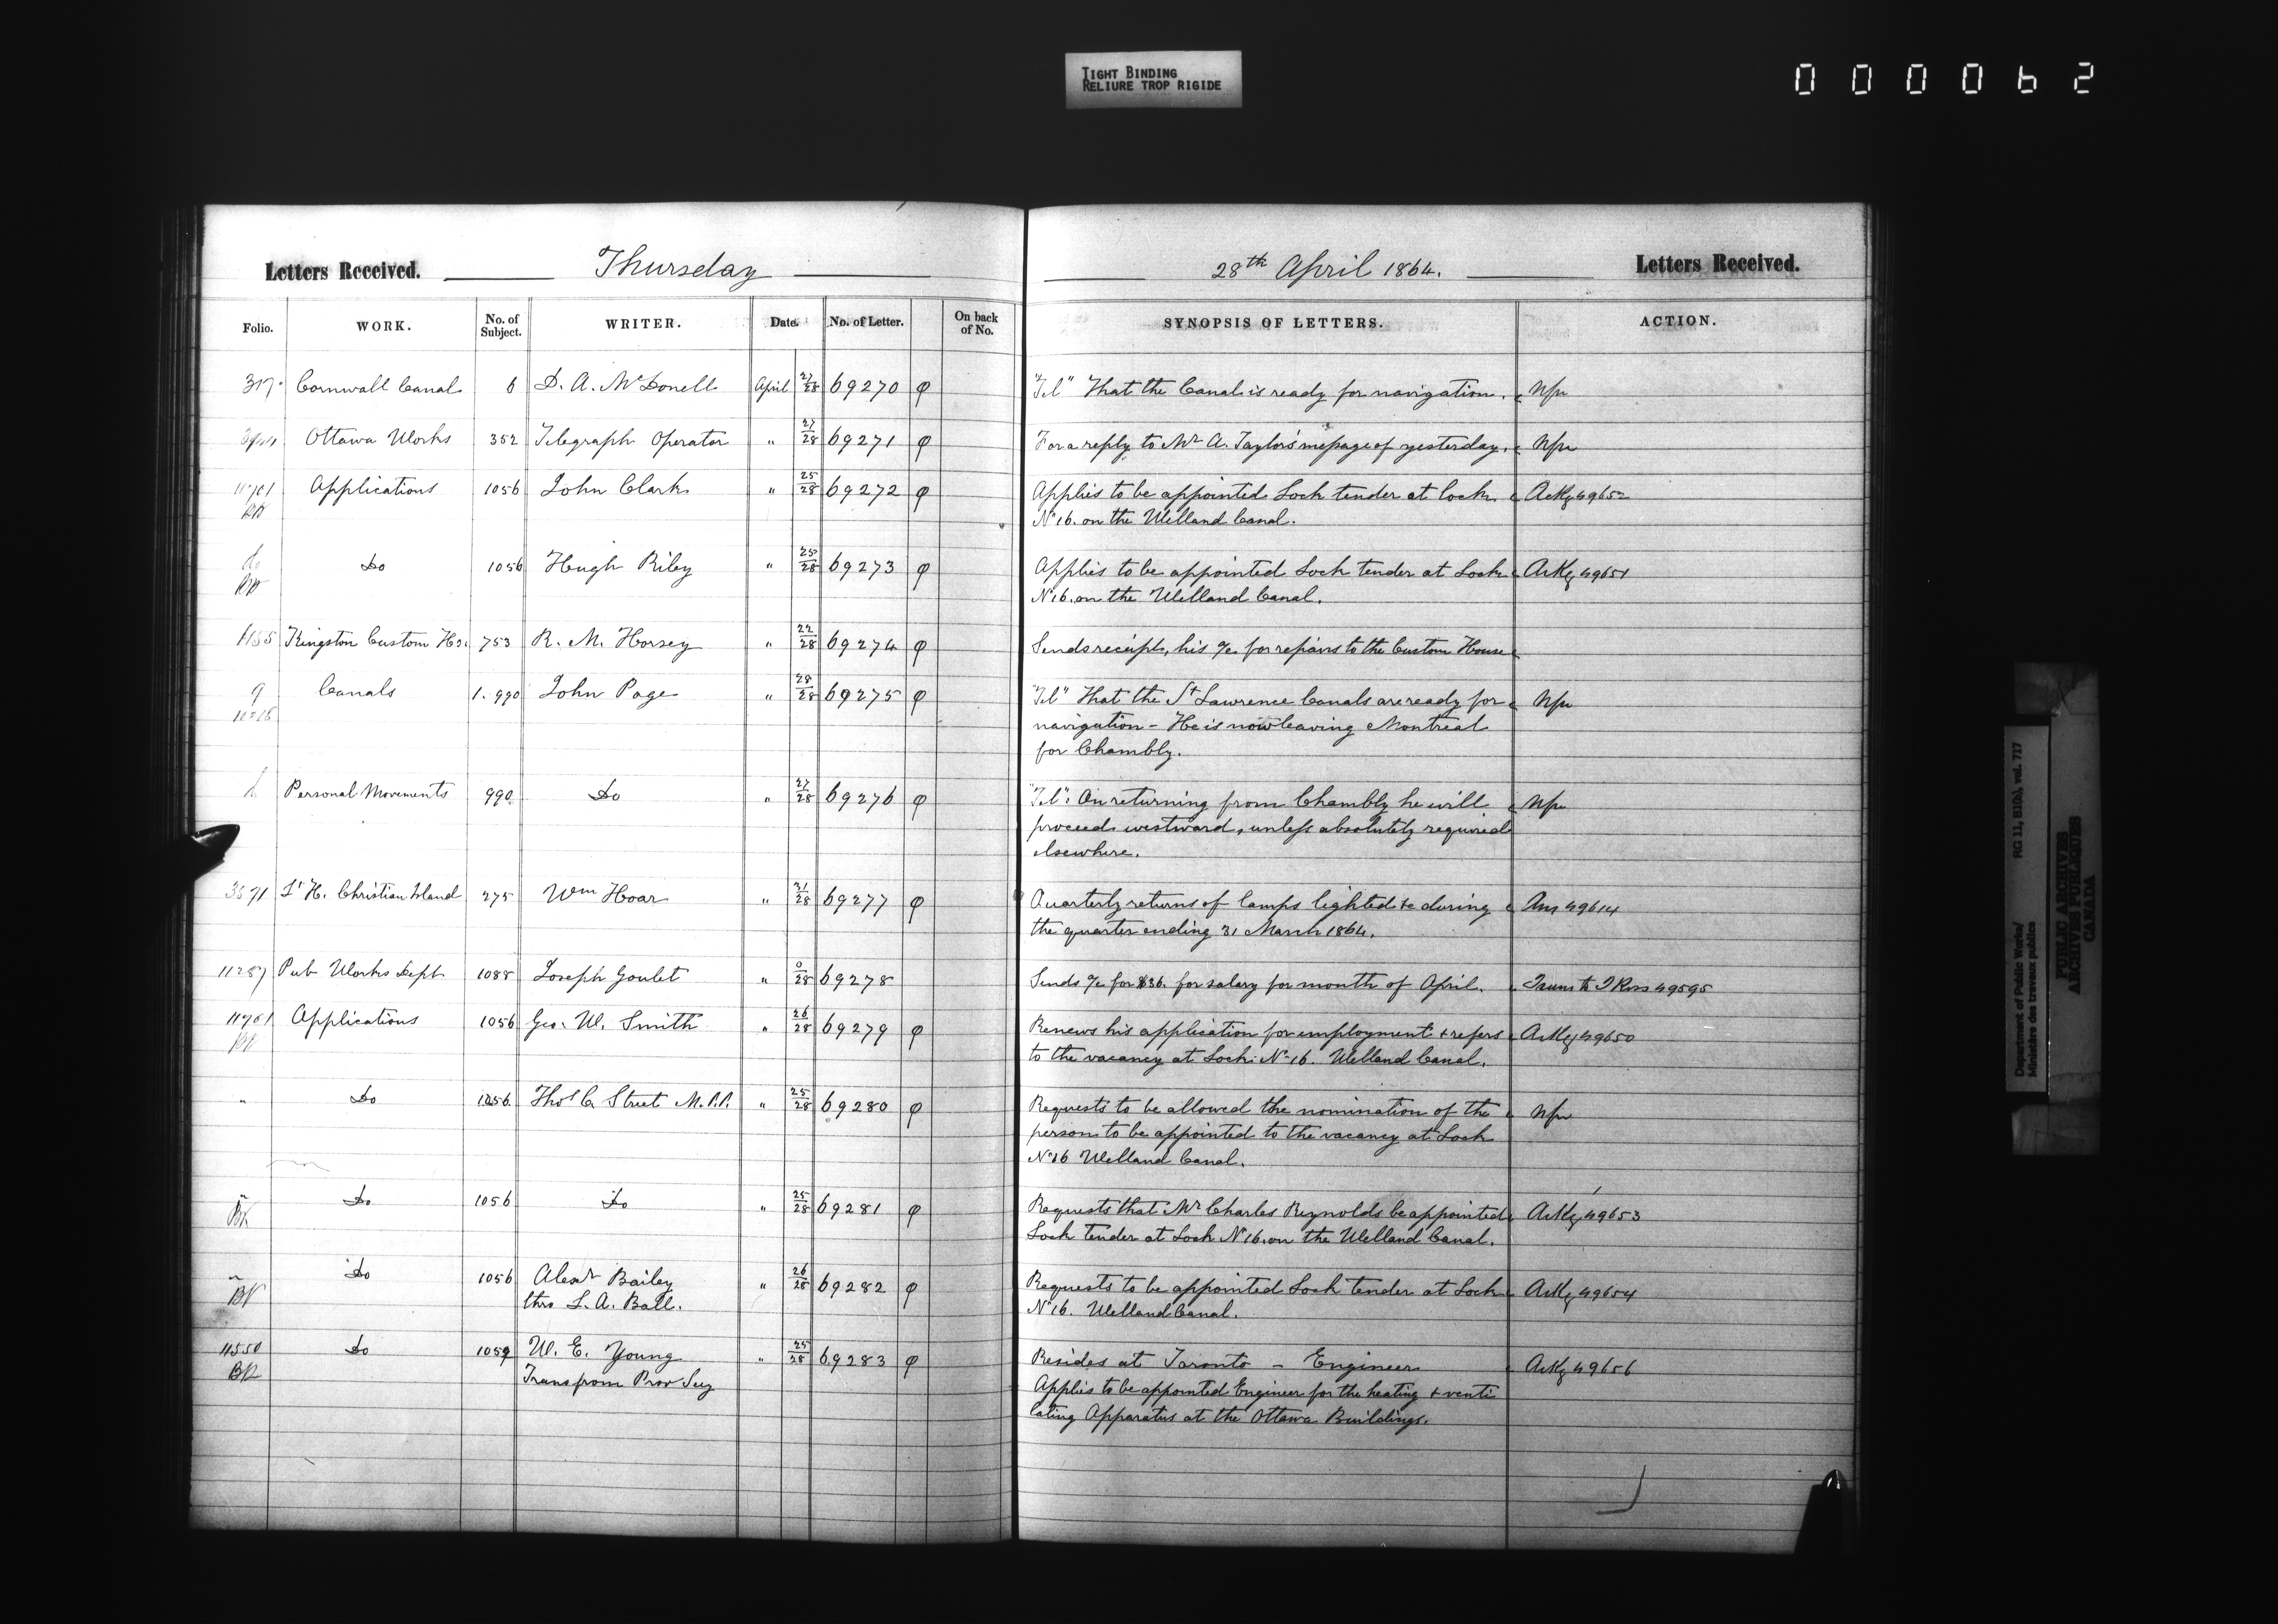 TIGHT BINDING
RELIURE TROP RIGIDE
000062
Letters Received. Thursday 28th April 1864. Letters Received.
Folio. WORK. No. of Subject. WRITER. Date. No. of Letter. On back of No. SYNOPSIS OF LETTERS. ACTION.
317 Cornwall Canal 6 D. A. McDonell April 27/28 69270 φ "Tel" That the Canal is ready for navigation. Npr
Ottawa Works 352 Telegraph Operator " 27/28 69271 φ For a reply to Mr A. Taylor's message of yesterday. Npr
11761 Applications 1056 John Clark " 25/28 69272 φ Applies to be appointed Lock tender at lock Ackg 49652
BR No 16. on the Welland Canal.
do Do 1056 Hugh Riley " 25/28 69273 φ Applies to be appointed Lock tender at Lock Ackg 49651
BR No 16. on the Welland Canal.
1155 Kingston Custom Ho. 753 R. M. Horsey " 22/28 69274 φ Sends receipt, his a/c for repairs to the Custom House
9 Canals 1. 990 John Page " 28/28 69275 φ "Tel" That the St Lawrence Canals are ready for Npr
navigation - He is now leaving Montreal
for Chambly.
Personal Movements 990 Do " 27/28 69276 φ "Tel": On returning from Chambly he will Npr
proceed westward, unless absolutely required
elsewhere.
3571 Lt H. Christian Island 275 Wm Hoar " 31/28 69277 φ Quarterly returns of lamps lighted &c during Ans 49614
the quarter ending 31 March 1864.
11287 Pub Works Dept 1088 Joseph Goulet " 0/28 69278 Sends a/c for $36. for salary for month of April. Trans to J Ross 49595
11761 Applications 1056 Geo. W. Smith " 26/28 69279 φ Renews his application for employment & refers Ackg 49650
BR to the vacancy at Lock No 16. Welland Canal.
" Do 1056 Thos C Street M.P.P. " 25/28 69280 φ Requests to be allowed the nomination of the Npr
person to be appointed to the vacancy at Lock
No 16 Welland Canal.
" Do 1056 Do " 25/28 69281 φ Requests that Mr Charles Reynolds be appointed Ackg 49653
BR Lock tender at Lock No 16. on the Welland Canal.
" Do 1056 Alexr Bailey " 26/28 69282 φ Requests to be appointed Lock tender at Lock Ackg 49654
BR thro L. A. Ball. No 16. Welland Canal.
11550 Do 1059 W. E. Young " 25/28 69283 φ Resides at Toronto - Engineer Ackg 49656
BR Trans from Prov Secy Applies to be appointed Engineer for the heating & venti
lating Apparatus at the Ottawa Buildings.
Department of Public Works/ RG 11, B1(b), vol. 717
Ministère des travaux publics
PUBLIC ARCHIVES
ARCHIVES PUBLIQUES
CANADA